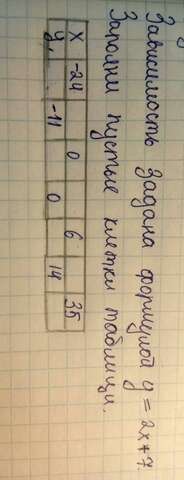 Зависимость задана формулой y = 2x+7.
Заполни пустые клетки таблици.
x -24 0 6 35
y -11 0 14